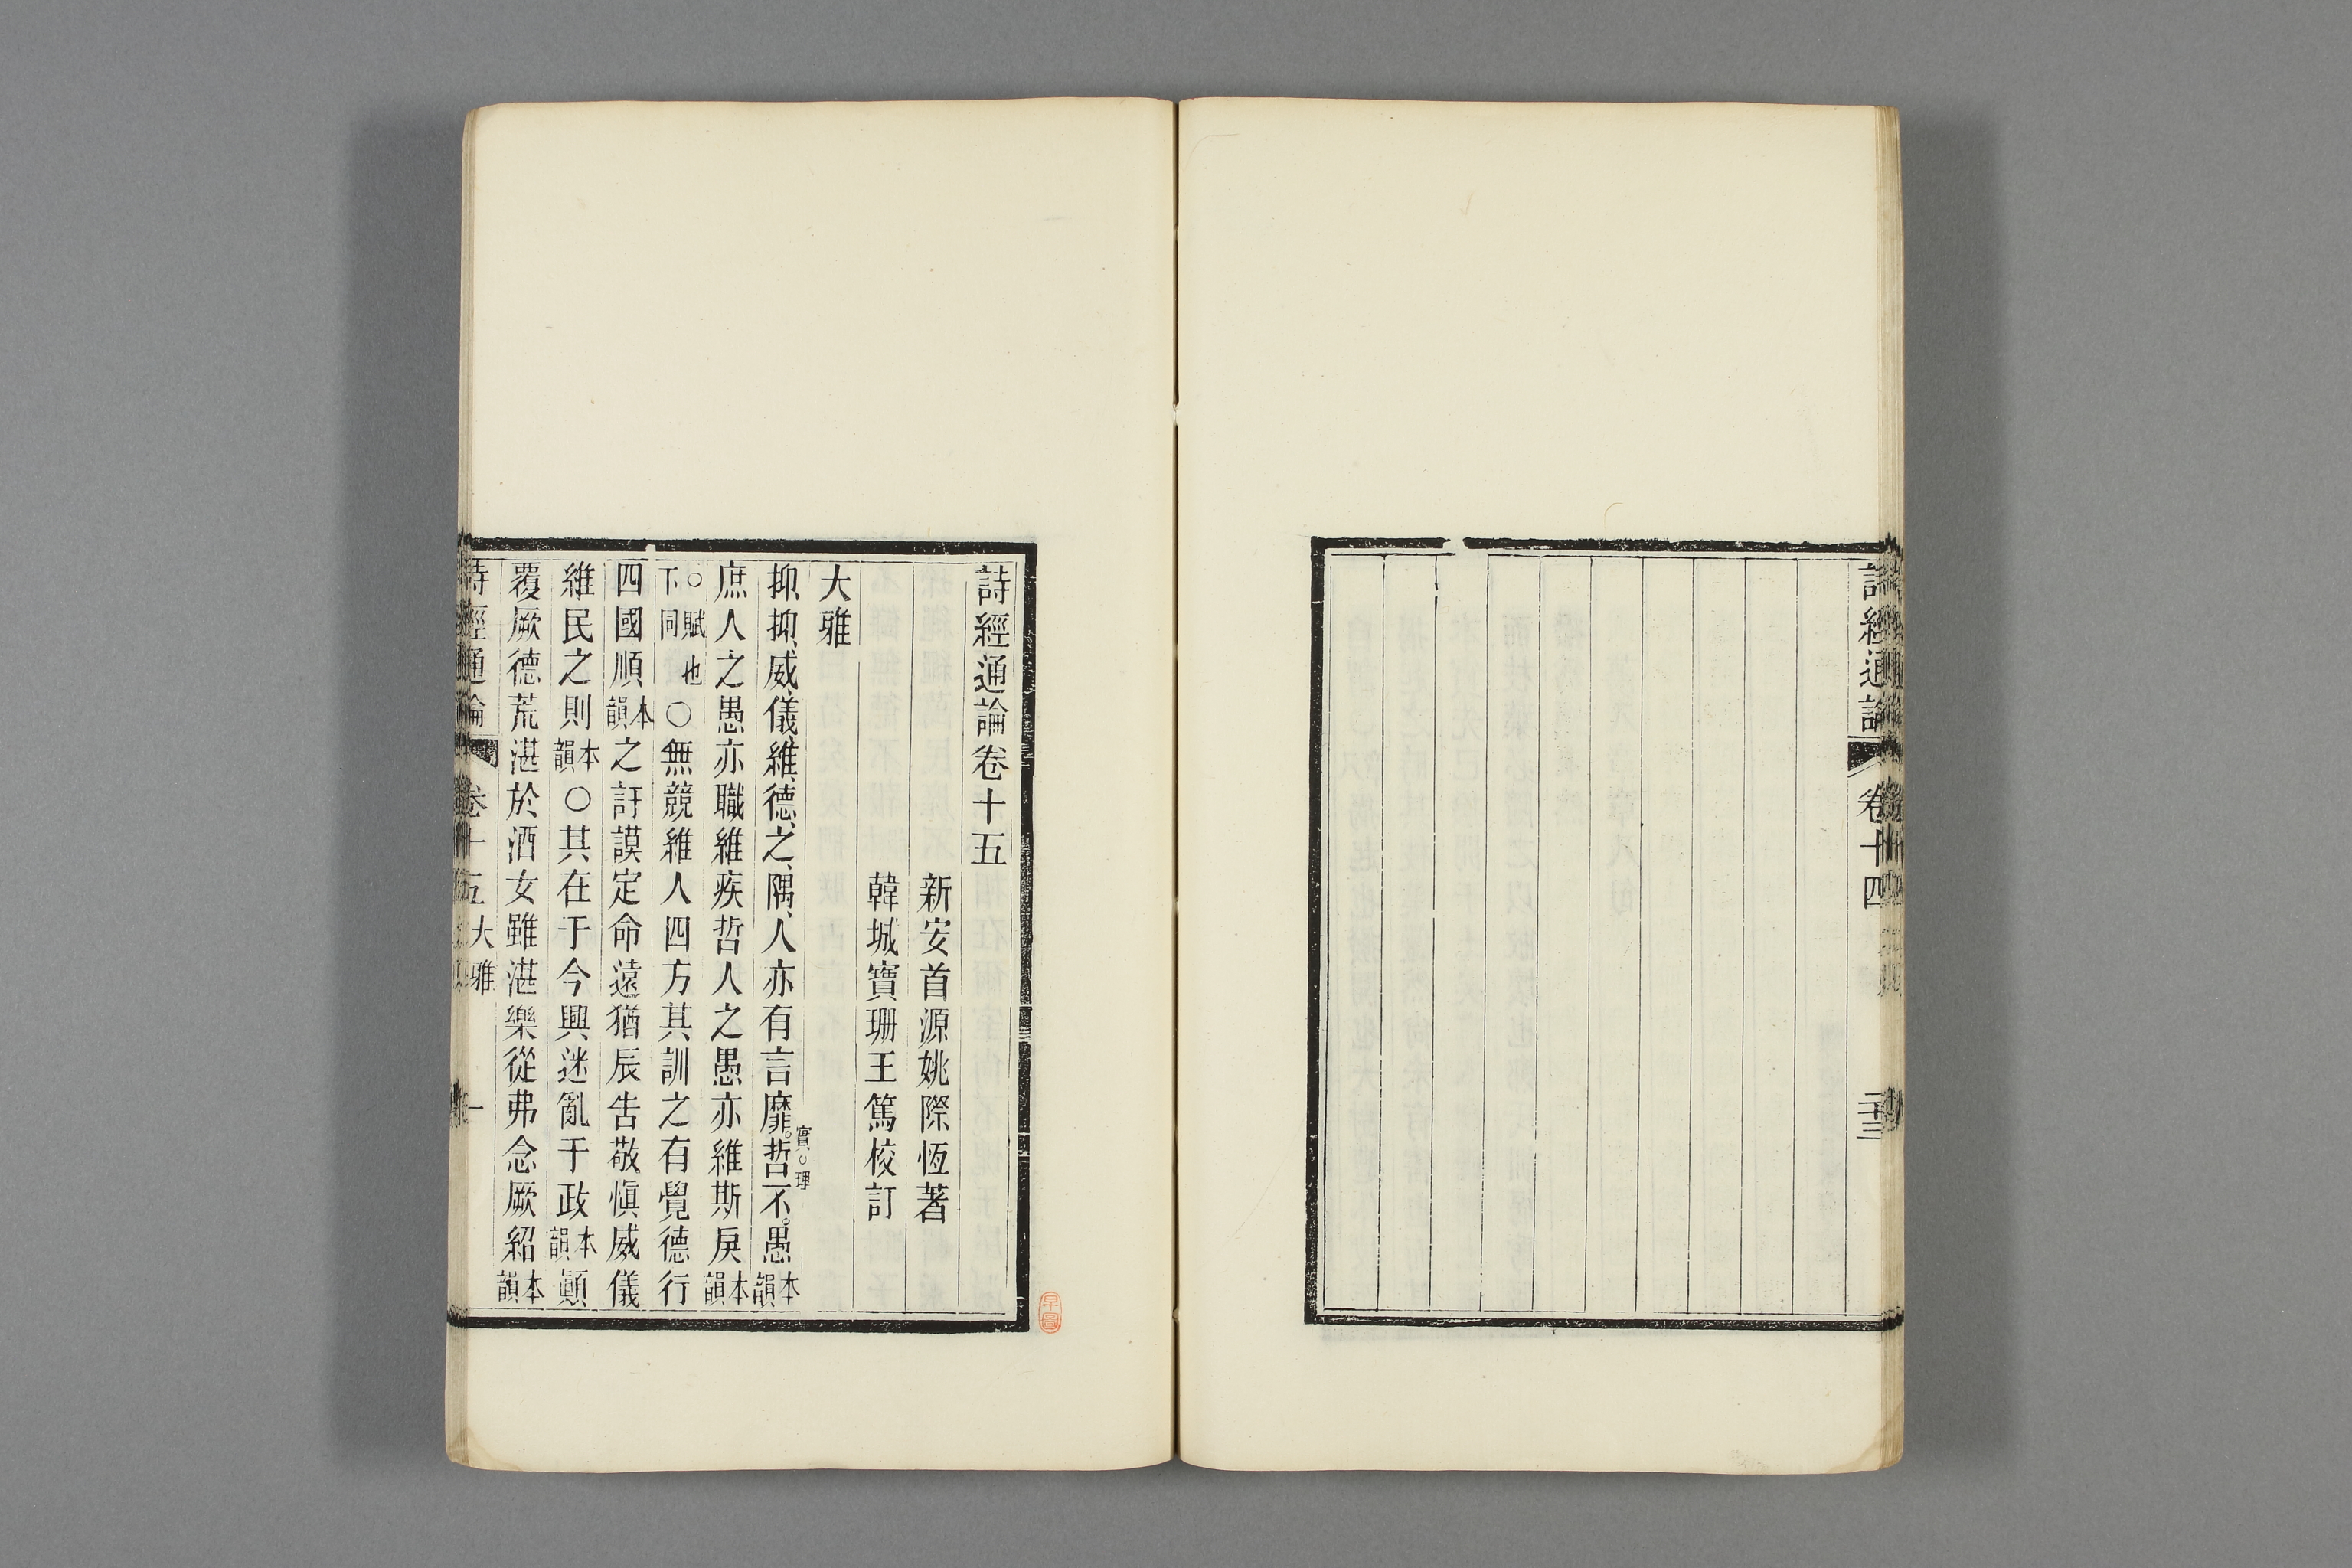 詩經通論 卷十四 二十三
詩經通論卷十五
新安首源姚際恆著
韓城寶珊王篤校訂
大雅
抑抑威儀維德之隅人亦有言靡哲不愚本韻
實理
庶人之愚亦職維疾哲人之愚亦維斯戾本韻
○賦也下同○無競維人四方其訓之有覺德行
四國順本韻之訏謨定命遠猶辰告敬愼威儀
維民之則本韻○其在于今興迷亂于政本韻顚
覆厥德荒湛於酒女雖湛樂從弗念厥紹本韻
詩經通論 卷十五大雅 一